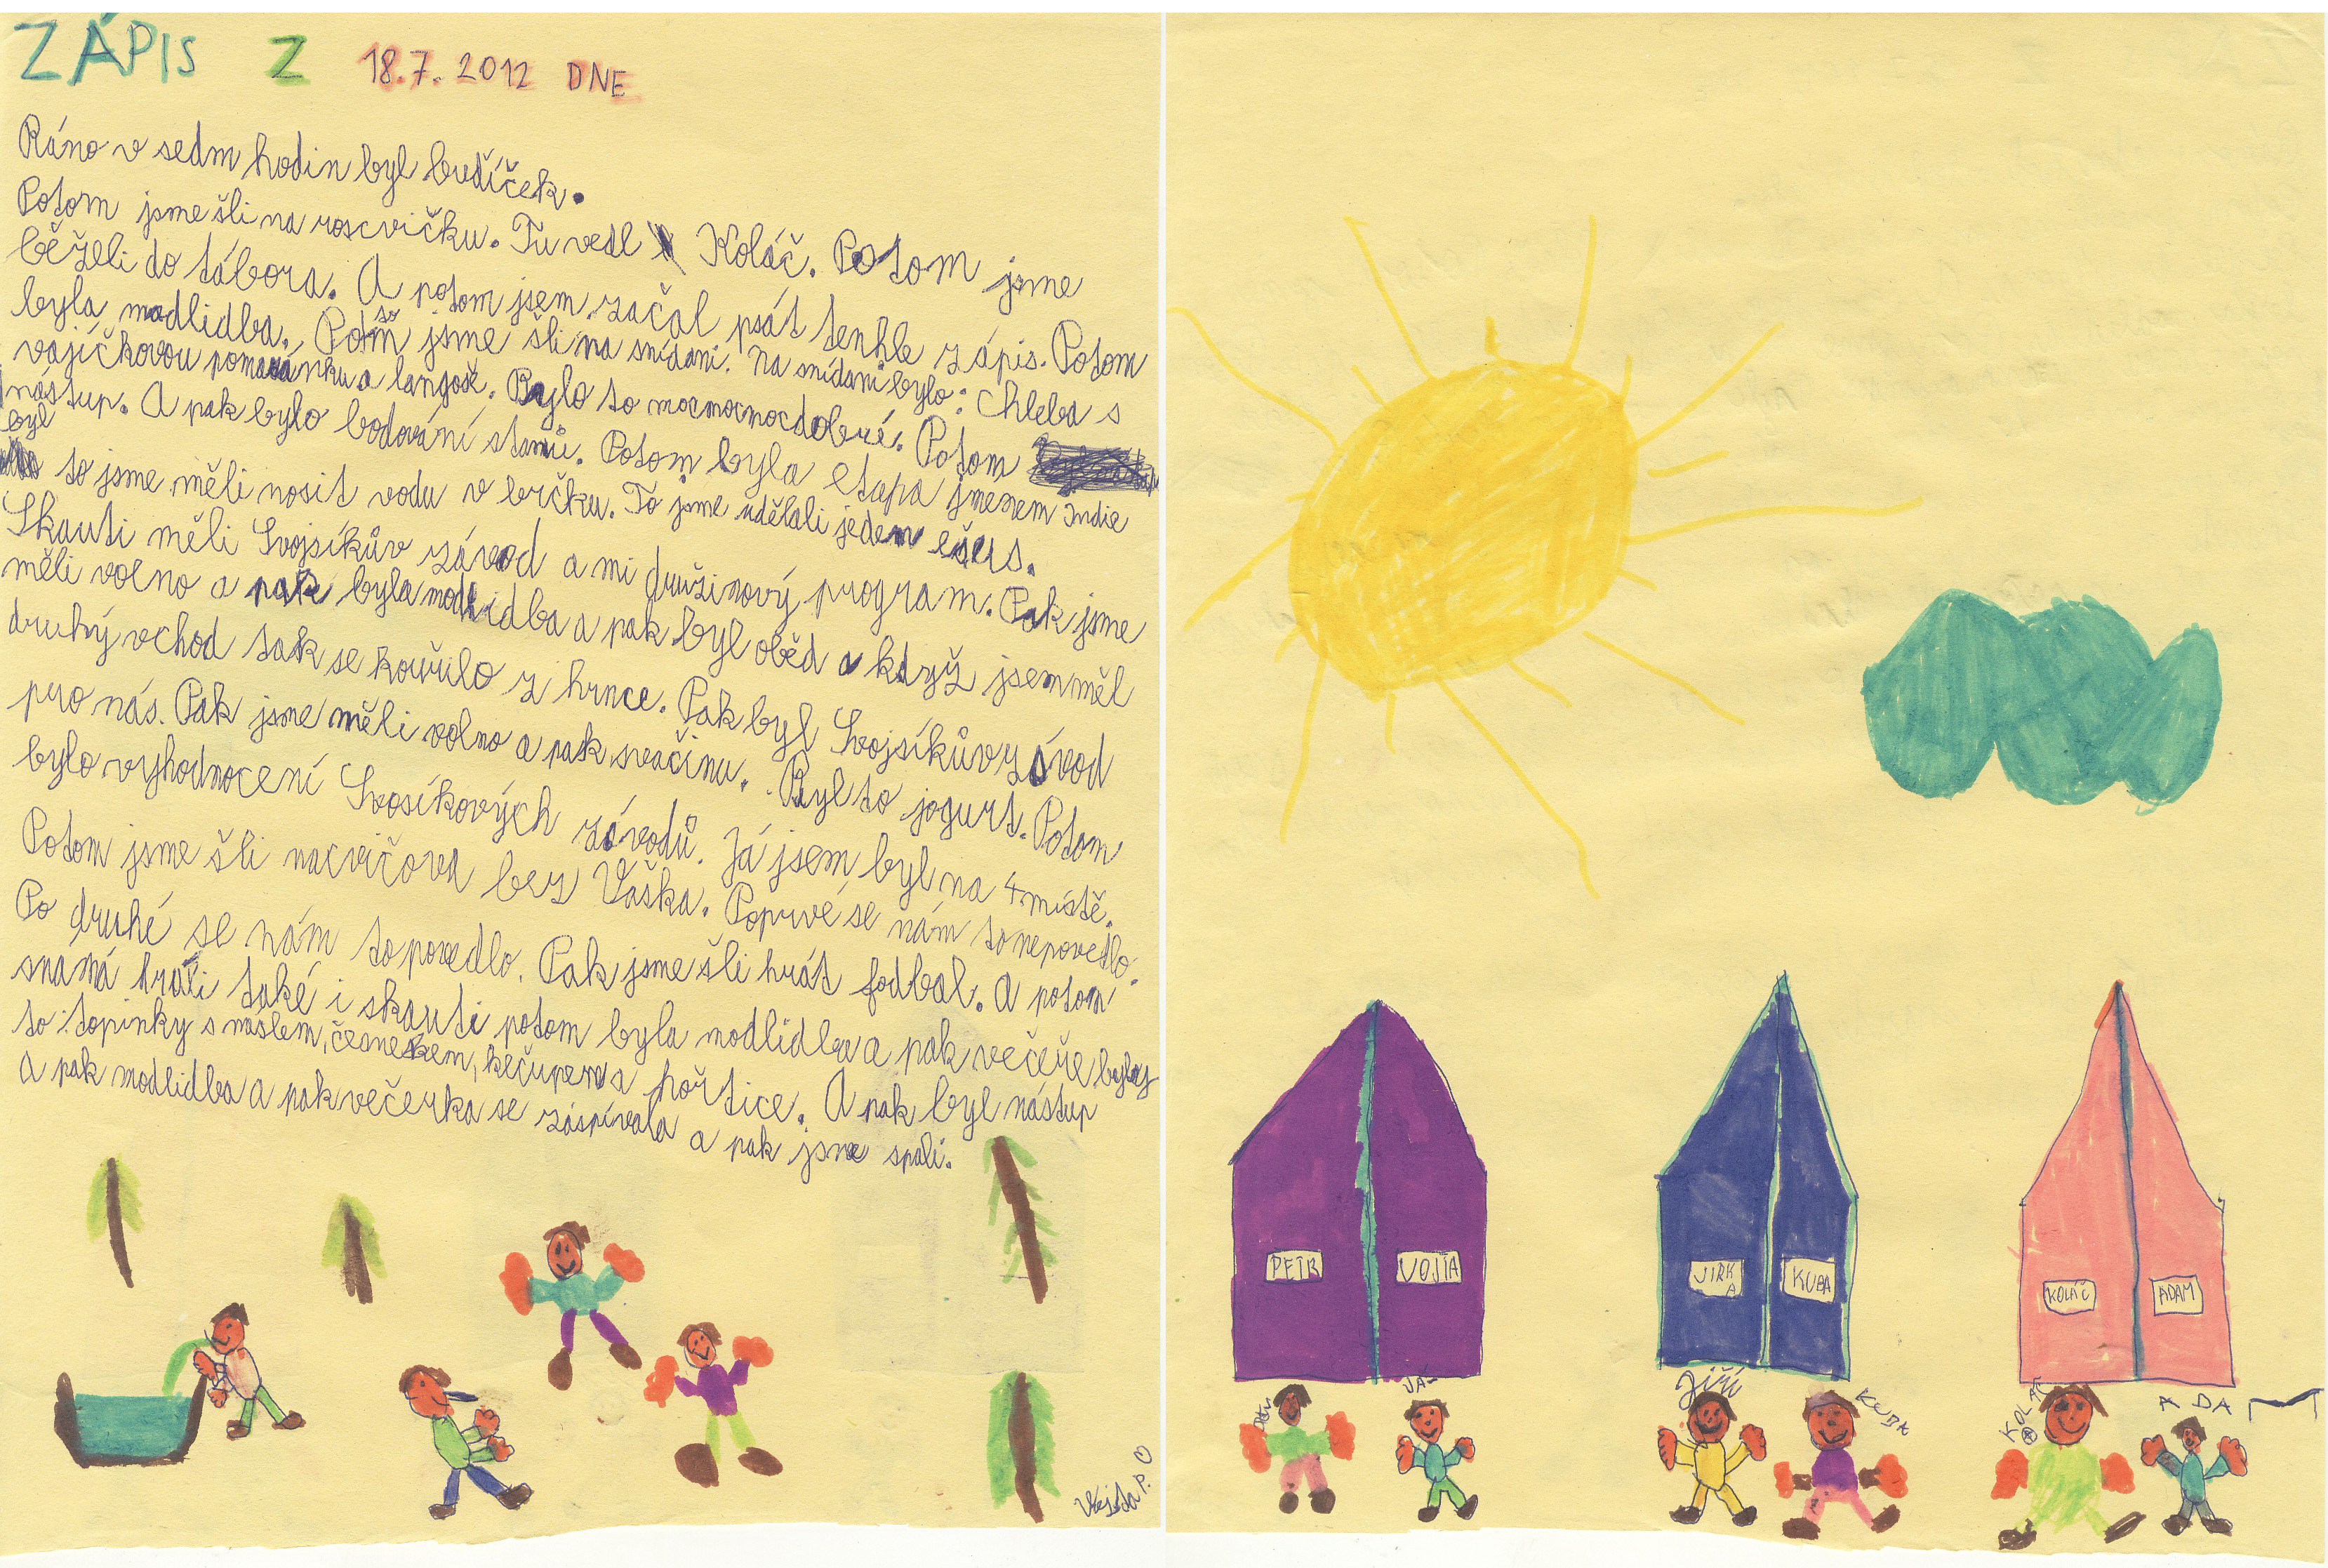 ZÁPIS Z 18.7. 2012 DNE
Ráno v sedm hodin byl budíček.
Potom jsme šli na roscvičku. Tu vedl Koláč. Potom jsme
běželi do tábora. A potom jsem začal psát tenhle zápis. Potom
byla modlidba. Potom jsme šli na snídani. Na snídani bylo: Chleba s
vajíčkovou pomazánku a langoš. Bylo to mocmocmocdobré. Potom
byl nástup. A pak bylo bodování stanů. Potom byla etapa jménem Indie
to jsme měli nosit vodu v brčku. To jsme udělali jeden ešus.
Skauti měli Svojsíkův závod a mi družinový program. Pak jsme
měli volno a pak byla modlidba a pak byl oběd a když jsem měl
druhý vchod tak se kouřilo z hrnce. Pak byl Svojsíkův závod
pro nás. Pak jsme měli volno a pak svačinu. Byl to jogurt. Potom
bylo vyhodnocení Svosíkových závodů. Já jsem byl na 4 místě.
Potom jsme šli nacvičova bez Vaška. Poprvé se nám to nepovedlo.
Po druhé se nám to povedlo. Pak jsme šli hrát fodbal. A potom
snámá hráli také i skauti potom byla modlidba a pak večeře byly
to topinky s máslem, česnekem, kečupem a hořtice. A pak byl nástup
a pak modlidba a pak večerka se zaspívala a pak jsme spali.
Vojta P.
PETR
VOJTA
JIRKA
KUBA
KOLÁČ
ADAM
JÁ
Jiří
KUBA
KOLÁČ
ADA